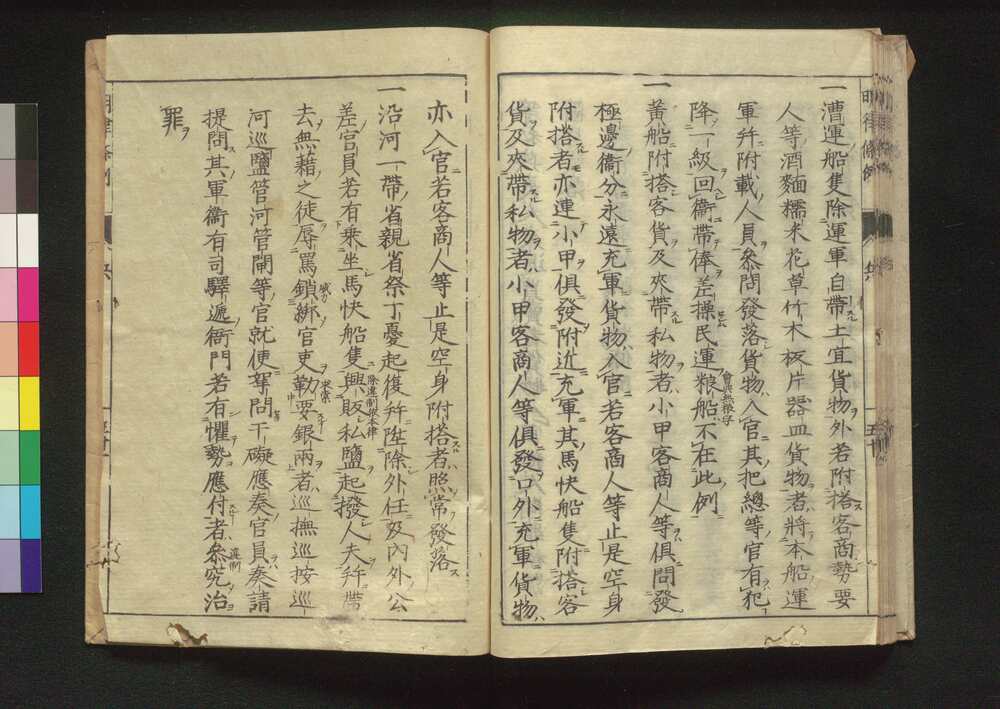 一漕運船隻除運軍自帶土宜貨物外若附搭客商勢要
人等酒麵糯米花草竹木板片器皿貨物者將本船運
軍幷附載人員參問發落貨物入官其把總等官有犯
降一級回衞帶俸差操民運粮船不在此例
一黃船附搭客貨及夾帶私物者小甲客商人等俱問發
極邊衞分永遠充軍貨物入官若客商人等止是空身
附搭者亦連小甲俱發附近充軍其馬快船隻附搭客
貨及夾帶私物者小甲客商人等俱發口外充軍貨物
亦入官若客商人等止是空身附搭者照常發落
一沿河一帶省親省祭丁憂起復幷陞除外任及內外公
差官員若有乘坐馬快船隻興販私鹽起撥人夫幷帶
去無藉之徒辱罵鎖綁官吏勒要銀兩者巡撫巡按巡
河巡鹽管河管閘等官就便拏問干礙應奏官員奏請
提問其軍衞有司驛遞衙門若有懼勢應付者參究治
罪